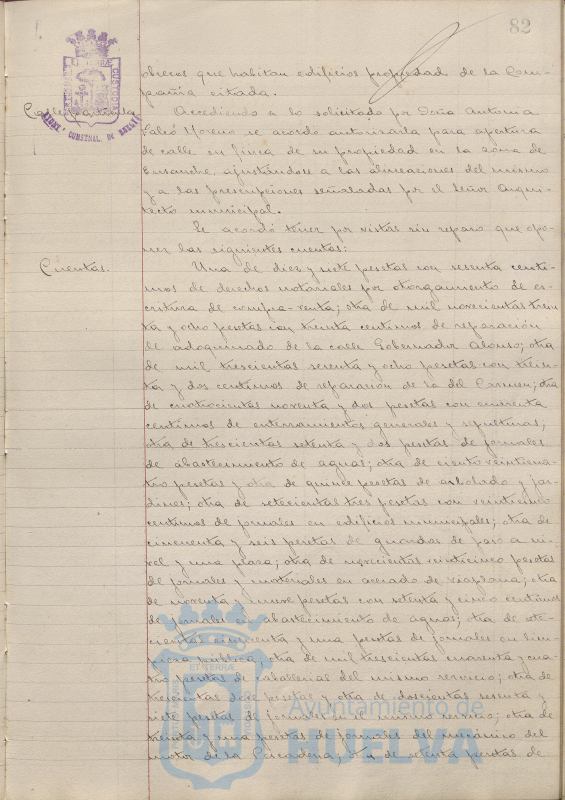 82
obreros que habitan edificios propiedad de la Com-
pañia citada.
Accediendo a lo solicitado por Doña Antonia
Moreno se acordó autorizarla para apertura
de calle en finca de su propiedad en la zona de
Ensanche, ajustándose a las alineaciones del mismo
y a las prescripciones señaladas por el Señor Arqui-
tecto municipal.
Se acordó tener por vistas sin reparo que opo-
ner las siguientes cuentas:
Cuentas.
Una de diez y siete pesetas con sesenta centi-
mos de derechos notariales por otorgamiento de es-
critura de compra-venta; otra de mil novecientas trein-
ta y ocho pesetas con treinta centimos de reparación
de adoquinado de la calle Gobernador Alonso; otra
de mil trescientas sesenta y ocho pesetas con trein-
ta y dos centimos de reparación de la del Carmen; otra
de cuatrocientas noventa y dos pesetas con cincuenta
centimos de enterramientos generales y sepulturas;
otra de trescientas setenta y dos pesetas de jornales
de abastecimiento de aguas; otra de ciento veinticua-
tro pesetas y otra de quince pesetas de arbolado y jar-
dines; otra de setecientas tres pesetas con veinticinco
centimos de jornales en edificios municipales; otra de
cincuenta y seis pesetas de guardas de paso a ni-
vel y una plaza; otra de novecientas veinticinco pesetas
de jornales y materiales en acerado de viaplana; otra
de noventa y nueve pesetas con setenta y cinco centimos
de jornales en abastecimiento de aguas; otra de sete-
cientas cincuenta y una pesetas de jornales en lim-
pieza pública; otra de mil trescientas cuarenta y cua-
tro pesetas de caballerias del mismo servicio; otra de
trescientas doce pesetas y otra de doscientas sesenta y
siete pesetas de jornales en el mismo servicio; otra de
treinta y una pesetas de jornales del mecánico del
motor de la Pescaderia; otra de setenta pesetas de
Ayuntamiento de
HUELVA